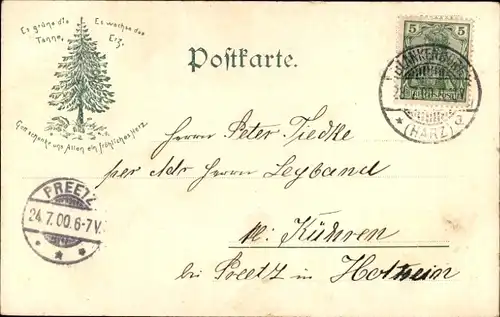 Es grüne die Es wachse das
Tanne, Erz,
Gott schenke uns Allen ein fröhliches Herz.
Postkarte.
5 5
BLANKENBURG
(HARZ)
Herrn Peter Tiedke
per Adr Herrn Leyband
in Kühren
bei Preetz in Holstein
PREETZ
24.7.00.6-7V.